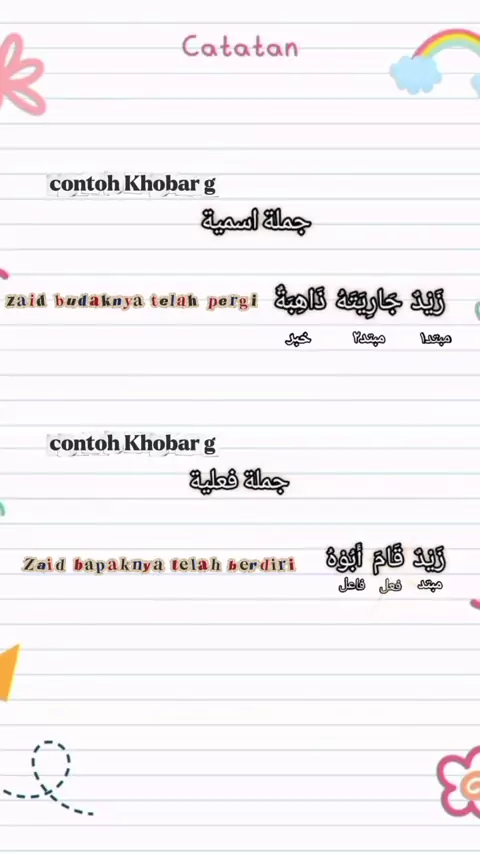 Catatan
contoh Khobar g
جملة اسمية
زَيْدٌ جَارِيَتَهُ ذَاهِبَةٌ
zaid budaknya telah pergi
مبتدا١ مبتد٢ خبر
contoh Khobar g
جملة فعلية
زَيْدٌ قَامَ أَبُوْهُ
Zaid bapaknya telah berdiri
مبتد فعل فاعل